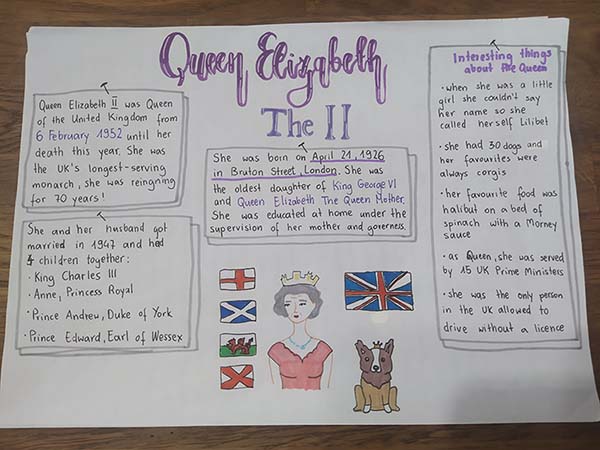 Queen Elizabeth
The II
Queen Elizabeth II was Queen
of the United Kingdom from
6 February 1952 until her
death this year. She was
the UK's longest-serving
monarch, she was reigning
for 70 years!
She and her husband got
married in 1947 and had
4 children together:
· King Charles III
· Anne, Princess Royal
· Prince Andrew, Duke of York
· Prince Edward, Earl of Wessex
She was born on April 21, 1926
in Bruton Street, London. She was
the oldest daughter of King George VI
and Queen Elizabeth The Queen Mother.
She was educated at home under the
supervision of her mother and governess.
Interesting things
about the Queen
· when she was a little
girl she couldn't say
her name so she
called herself Lilibet
· she had 30 dogs and
her favourites were
always corgis
· her favourite food was
halibut on a bed of
spinach with a Morney
sauce
· as Queen, she was served
by 15 UK Prime Ministers
· she was the only person
in the UK allowed to
drive without a licence